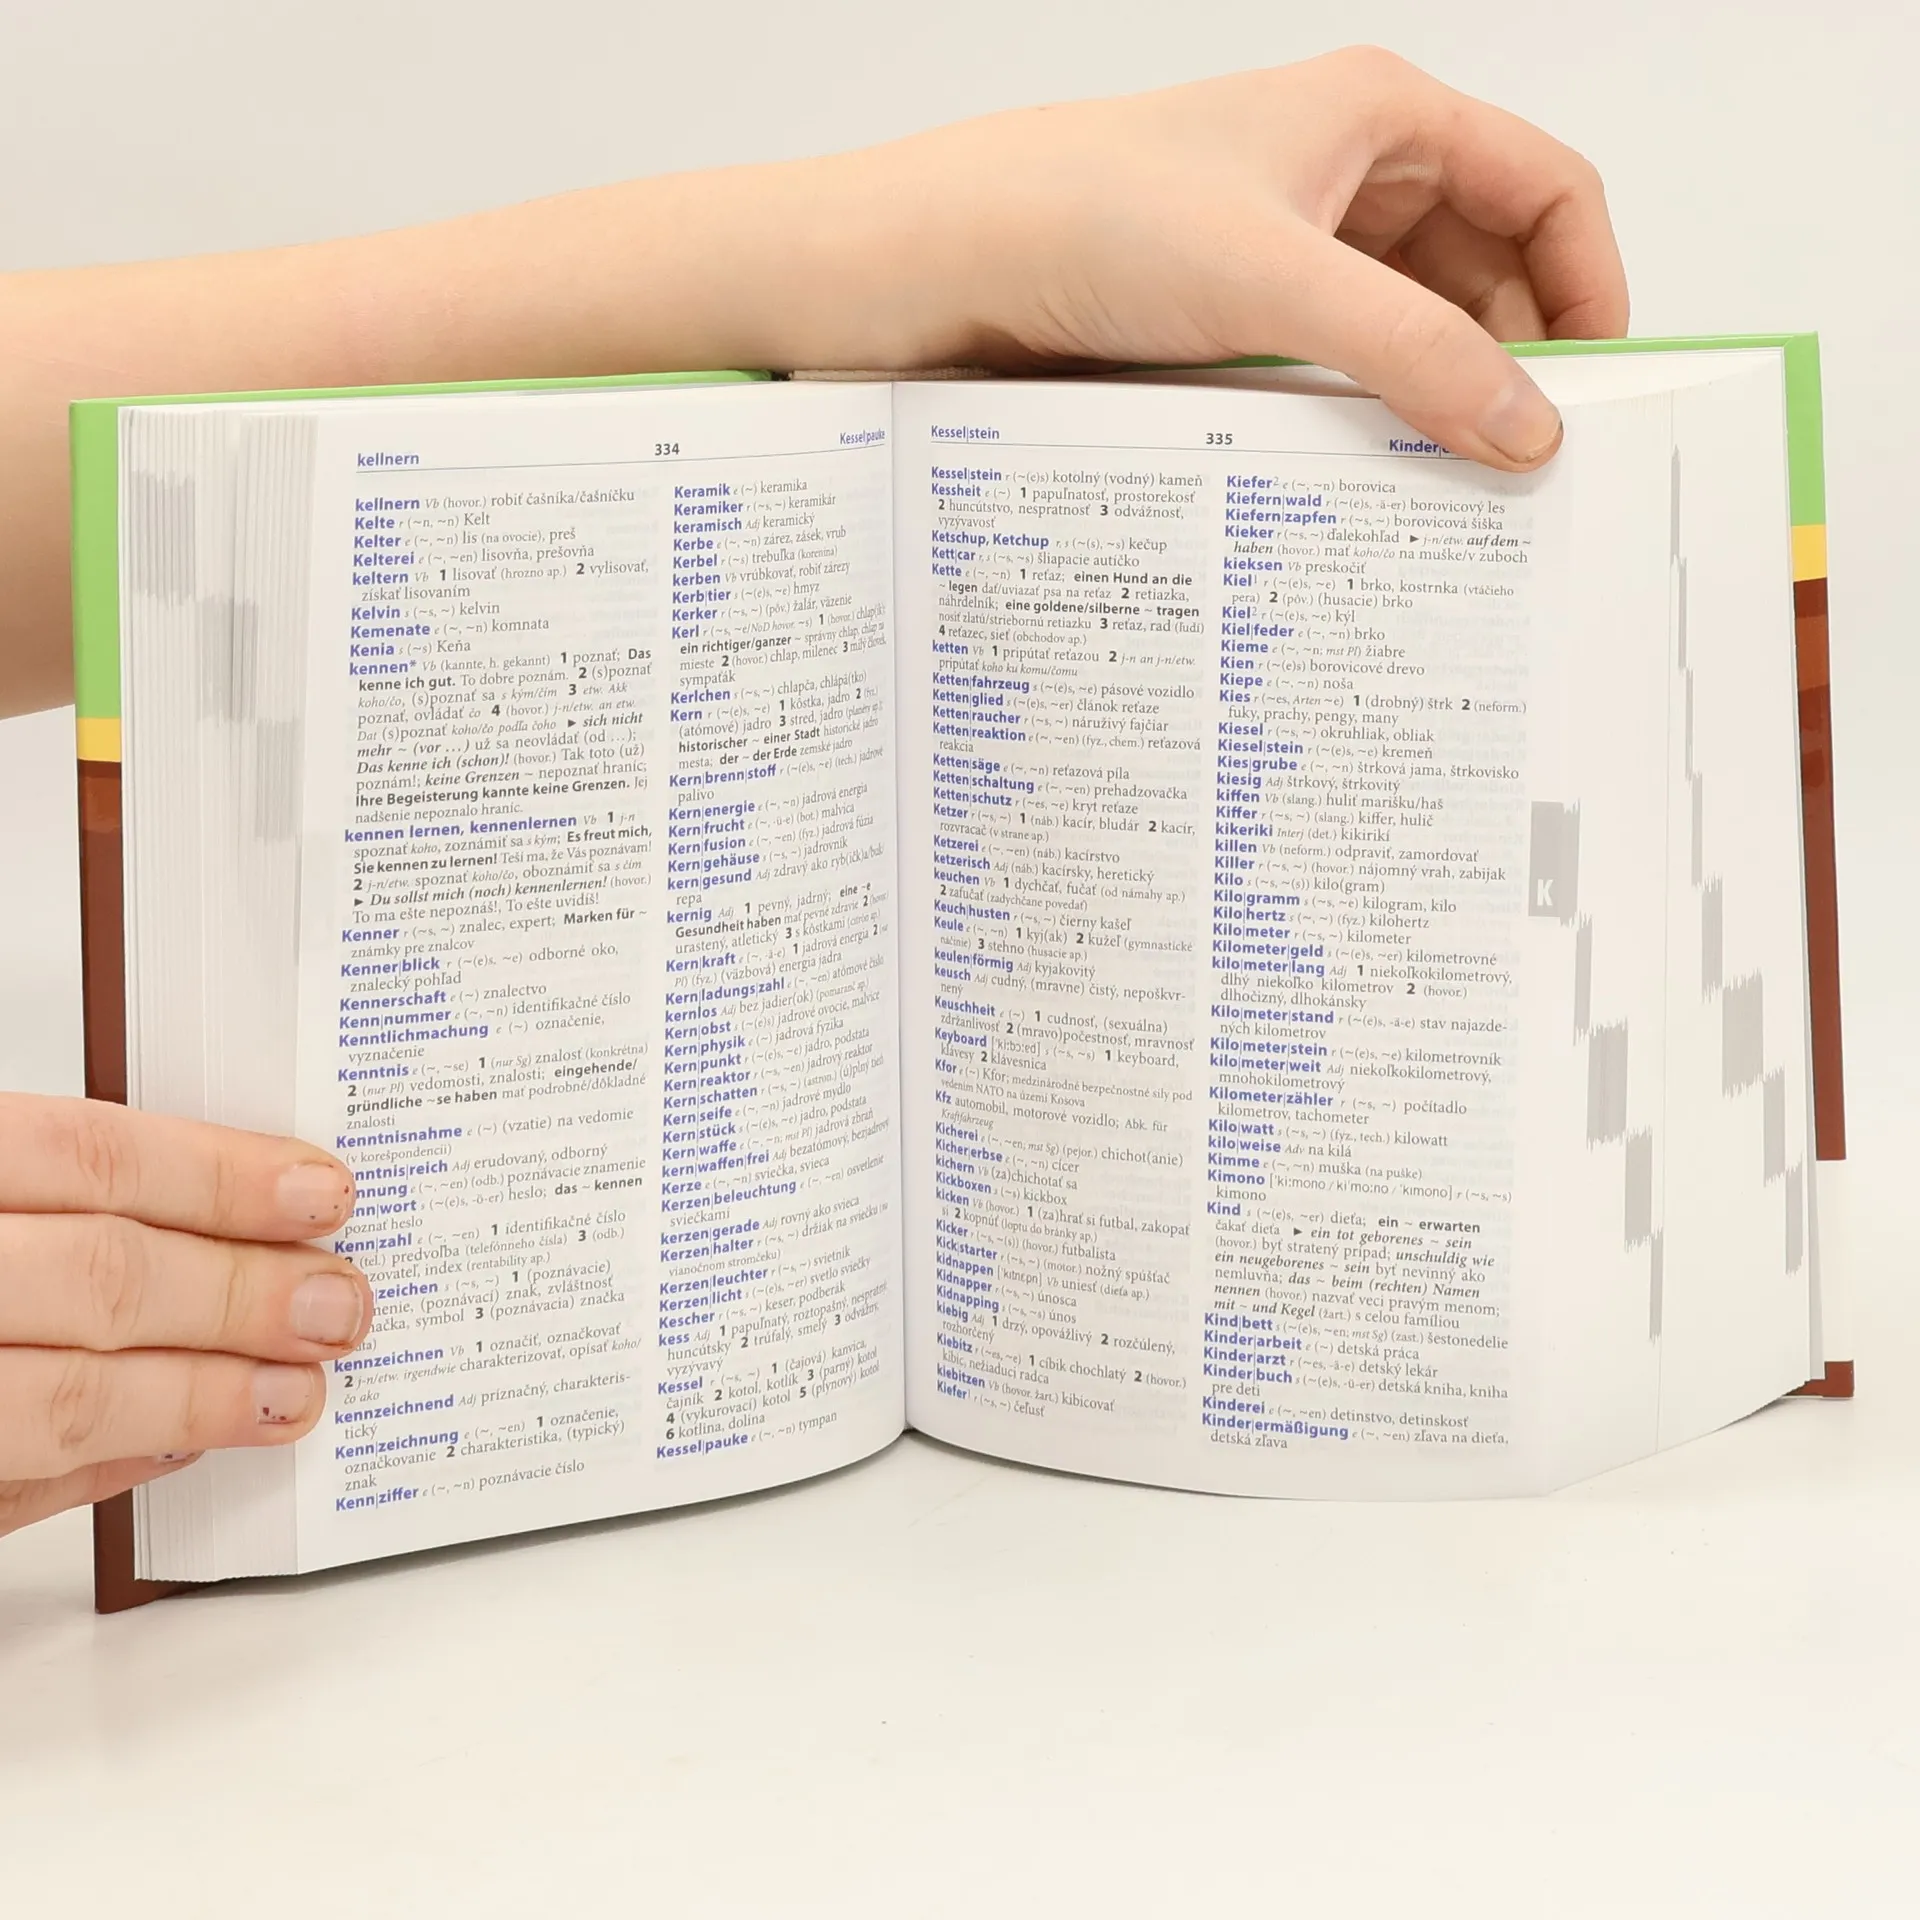 kellnern 334 Kessel|pauke
kellnern Vb (hovor.) robiť čašníka/čašníčku
Kelte r (~n, ~n) Kelt
Kelter e (~, ~n) lis (na ovocie), preš
Kelterei e (~, ~en) lisovňa, prešovňa
keltern Vb 1 lisovať (hrozno ap.) 2 vylisovať,
získať lisovaním
Kelvin s (~s, ~) kelvin
Kemenate e (~, ~n) komnata
Kenia s (~s) Keňa
kennen* Vb (kannte, h. gekannt) 1 poznať; Das
kenne ich gut. To dobre poznám. 2 (s)poznať
koho/čo, (s)poznať sa s kým/čím 3 etw. Akk
poznať, ovládať čo 4 (hovor.) j-n/etw. an etw.
Dat (s)poznať koho/čo podľa čoho ► sich nicht
mehr ~ (vor ...) už sa neovládať (od ...);
Das kenne ich (schon)! (hovor.) Tak toto (už)
poznám!; keine Grenzen ~ nepoznať hraníc;
Ihre Begeisterung kannte keine Grenzen. Jej
nadšenie nepoznalo hraníc.
kennen lernen, kennenlernen Vb 1 j-n
spoznať koho, zoznámiť sa s kým; Es freut mich,
Sie kennen zu lernen! Teší ma, že Vás poznávam!
2 j-n/etw. spoznať koho/čo, oboznámiť sa s čím
► Du sollst mich (noch) kennenlernen! (hovor.)
To ma ešte nepoznáš!, To ešte uvidíš!
Kenner r (~s, ~) znalec, expert; Marken für ~
známky pre znalcov
Kenner|blick r (~(e)s, ~e) odborné oko,
znalecký pohľad
Kennerschaft e (~) znalectvo
Kenn|nummer e (~, ~n) identifikačné číslo
Kenntlichmachung e (~) označenie,
vyznačenie
Kenntnis e (~, ~se) 1 (nur Sg) znalosť (konkrétna)
2 (nur Pl) vedomosti, znalosti; eingehende/
gründliche ~se haben mať podrobné/dôkladné
znalosti
Kenntnisnahme e (~) (vzatie) na vedomie
(v korešpondencii)
nntnis|reich Adj erudovaný, odborný
nnung e (~, ~en) (odb.) poznávacie znamenie
nn|wort s (~(e)s, -ö-er) heslo; das ~ kennen
poznať heslo
Kenn|zahl e (~, ~en) 1 identifikačné číslo
(tel.) predvoľba (telefónneho čísla) 3 (odb.)
zovateľ, index (rentability ap.)
zeichen s (~s, ~) 1 (poznávacie)
menie, (poznávací) znak, zvláštnosť
načka, symbol 3 (poznávacia) značka
kennzeichnen Vb 1 označiť, označkovať
2 j-n/etw. irgendwie charakterizovať, opísať koho/
čo ako
kennzeichnend Adj príznačný, charakteris-
tický
Kenn|zeichnung e (~, ~en) 1 označenie,
označkovanie 2 charakteristika, (typický)
znak
Kenn|ziffer e (~, ~n) poznávacie číslo
Keramik e (~) keramika
Keramiker r (~s, ~) keramikár
keramisch Adj keramický
Kerbe e (~, ~n) zárez, zásek, vrub
Kerbel r (~s) trebuľka (korenina)
kerben Vb vrúbkovať, robiť zárezy
Kerb|tier s (~(e)s, ~e) hmyz
Kerker r (~s, ~) (pôv.) žalár, väzenie
Kerl r (~s, ~e/NoD hovor. ~s) 1 (hovor.) chlap(ík);
ein richtiger/ganzer ~ správny chlap, chlap na
mieste 2 (hovor.) chlap, milenec 3 milý človek,
sympaťák
Kerlchen s (~s, ~) chlapča, chlápä(tko)
Kern r (~(e)s, ~e) 1 kôstka, jadro 2 (fyz.)
(atómové) jadro 3 stred, jadro (planéty ap.);
historischer ~ einer Stadt historické jadro
mesta; der ~ der Erde zemské jadro
Kern|brenn|stoff r (~(e)s, ~e) (tech.) jadrové
palivo
Kern|energie e (~, ~n) jadrová energia
Kern|frucht e (~, -ü-e) (bot.) malvica
Kern|fusion e (~, ~en) (fyz.) jadrová fúzia
Kern|gehäuse s (~s, ~) jadrovník
kern|gesund Adj zdravý ako ryb(ičk)a/buk/
repa
kernig Adj 1 pevný, jadrný; eine ~e
Gesundheit haben mať pevné zdravie 2 (hovor.)
urastený, atletický 3 s kôstkami (citrón ap.)
Kern|kraft e (~, -ä-e) 1 jadrová energia 2
Pl) (fyz.) (väzbová) energia jadra
Kern|ladungs|zahl e (~, ~en) atómové číslo
kernlos Adj bez jadier(ok) (pomaranč ap.)
Kern|obst s (~(e)s) jadrové ovocie, malvice
Kern|physik e (~) jadrová fyzika
Kern|punkt r (~(e)s, ~e) jadro, podstata
Kern|reaktor r (~s, ~en) jadrový reaktor
Kern|schatten r (~s, ~) (astron.) (ú)plný tieň
Kern|seife e (~, ~n) jadrové mydlo
Kern|stück s (~(e)s, ~e) jadro, podstata
Kern|waffe e (~, ~n; mst Pl) jadrová zbraň
kern|waffen|frei Adj bezatómový, bezjadrový
Kerze e (~, ~n) sviečka, svieca
Kerzen|beleuchtung e (~, ~en) osvetlenie
sviečkami
kerzen|gerade Adj rovný ako svieca
Kerzen|halter r (~s, ~) držiak na sviečku (na
vianočnom stromčeku)
Kerzen|leuchter r (~s, ~) svietnik
Kerzen|licht s (~(e)s, ~er) svetlo sviečky
Kescher r (~s, ~) keser, podberák
kess Adj 1 papuľnatý, roztopašný, nespratný
huncútsky 2 trúfalý, smelý 3 odvážny,
vyzývavý
Kessel r (~s, ~) 1 (čajová) kanvica,
čajník 2 kotol, kotlík 3 (parný) kotol
4 (vykurovací) kotol 5 (plynový) kotol
6 kotlina, dolina
Kessel|pauke e (~, ~n) tympan
Kessel|stein 335 Kinder|
Kessel|stein r (~(e)s) kotolný (vodný) kameň
Kessheit e (~) 1 papuľnatosť, prostorekosť
2 huncútstvo, nespratnosť 3 odvážnosť,
vyzývavosť
Ketschup, Ketchup r, s (~(s), ~s) kečup
Kett|car r, s (~s, ~s) šliapacie autíčko
Kette e (~, ~n) 1 reťaz; einen Hund an die
~ legen dať/uviazať psa na reťaz 2 retiazka,
náhrdelník; eine goldene/silberne ~ tragen
nosiť zlatú/striebornú retiazku 3 reťaz, rad (ľudí)
4 reťazec, sieť (obchodov ap.)
ketten Vb 1 pripútať reťazou 2 j-n an j-n/etw.
pripútať koho ku komu/čomu
Ketten|fahrzeug s (~(e)s, ~e) pásové vozidlo
Ketten|glied s (~(e)s, ~er) článok reťaze
Ketten|raucher r (~s, ~) náruživý fajčiar
Ketten|reaktion e (~, ~en) (fyz., chem.) reťazová
reakcia
Ketten|säge e (~, ~n) reťazová píla
Ketten|schaltung e (~, ~en) prehadzovačka
Ketten|schutz r (~es, ~e) kryt reťaze
Ketzer r (~s, ~) 1 (náb.) kacír, bludár 2 kacír,
rozvracač (v strane ap.)
Ketzerei e (~, ~en) (náb.) kacírstvo
ketzerisch Adj (náb.) kacírsky, heretický
keuchen Vb 1 dychčať, fučať (od námahy ap.)
2 zafučať (zadychčane povedať)
Keuch|husten r (~s, ~) čierny kašeľ
Keule e (~, ~n) 1 kyj(ak) 2 kužeľ (gymnastické
náčinie) 3 stehno (husacie ap.)
keulen|förmig Adj kyjakovitý
keusch Adj cudný, (mravne) čistý, nepoškvr-
nený
Keuschheit e (~) 1 cudnosť, (sexuálna)
zdržanlivosť 2 (mravo)počestnosť, mravnosť
Keyboard ['ki:bɔ:ed] s (~s, ~s) 1 keyboard,
klávesy 2 klávesnica
Kfor s (~) Kfor; medzinárodné bezpečnostné sily pod
vedením NATO na území Kosova
Kfz automobil, motorové vozidlo; Abk. für
Kraftfahrzeug
Kicherei e (~, ~en; mst Sg) (pejor.) chichot(anie)
Kicher|erbse e (~, ~n) cícer
kichern Vb (za)chichotať sa
Kickboxen s (~s) kickbox
kicken Vb (hovor.) 1 (za)hrať si futbal, zakopať
si 2 kopnúť (loptu do bránky ap.)
Kicker r (~s, ~(s)) (hovor.) futbalista
Kick|starter r (~s, ~) (motor.) nožný spúšťač
kidnappen ['kıtnɛpn] Vb uniesť (dieťa ap.)
Kidnapper r (~s, ~) únosca
Kidnapping s (~s, ~s) únos
kiebig Adj 1 drzý, opovážlivý 2 rozčúlený,
rozhorčený
Kiebitz r (~es, ~e) 1 cíbik chochlatý 2 (hovor.)
kibic, nežiaduci radca
kiebitzen Vb (hovor. žart.) kibicovať
Kiefer¹ r (~s, ~) čeľusť
Kiefer² e (~, ~n) borovica
Kiefern|wald r (~(e)s, -ä-er) borovicový les
Kiefern|zapfen r (~s, ~) borovicová šiška
Kieker r (~s, ~) ďalekohľad ► j-n/etw. auf dem ~
haben (hovor.) mať koho/čo na muške/v zuboch
kieksen Vb preskočiť
Kiel¹ r (~(e)s, ~e) 1 brko, kostrnka (vtáčieho
pera) 2 (pôv.) (husacie) brko
Kiel² r (~(e)s, ~e) kýl
Kiel|feder e (~, ~n) brko
Kieme e (~, ~n; mst Pl) žiabre
Kien r (~(e)s) borovicové drevo
Kiepe e (~, ~n) noša
Kies r (~es, Arten ~e) 1 (drobný) štrk 2 (neform.)
fuky, prachy, pengy, many
Kiesel r (~s, ~) okruhliak, obliak
Kiesel|stein r (~(e)s, ~e) kremeň
Kies|grube e (~, ~n) štrková jama, štrkovisko
kiesig Adj štrkový, štrkovitý
kiffen Vb (slang.) huliť marišku/haš
Kiffer r (~s, ~) (slang.) kiffer, hulič
kikeriki Interj (det.) kikirikí
killen Vb (neform.) odpraviť, zamordovať
Killer r (~s, ~) (hovor.) nájomný vrah, zabijak
Kilo s (~s, ~(s)) kilo(gram)
Kilo|gramm s (~s, ~e) kilogram, kilo
Kilo|hertz s (~, ~) (fyz.) kilohertz
Kilo|meter r (~s, ~) kilometer
Kilometer|geld s (~(e)s, ~er) kilometrovné
kilo|meter|lang Adj 1 niekoľkokilometrový,
dlhý niekoľko kilometrov 2 (hovor.)
dlhočizný, dlhokánsky
Kilo|meter|stand r (~(e)s, -ä-e) stav najazde-
ných kilometrov
Kilo|meter|stein r (~(e)s, ~e) kilometrovník
kilo|meter|weit Adj niekoľkokilometrový,
mnohokilometrový
Kilometer|zähler r (~s, ~) počítadlo
kilometrov, tachometer
Kilo|watt s (~s, ~) (fyz., tech.) kilowatt
kilo|weise Adv na kilá
Kimme e (~, ~n) muška (na puške)
Kimono ['ki:mono / ki'mo:no / 'kımono] r (~s, ~s)
kimono
Kind s (~(e)s, ~er) dieťa; ein ~ erwarten
čakať dieťa ► ein tot geborenes ~ sein
(hovor.) byť stratený prípad; unschuldig wie
ein neugeborenes ~ sein byť nevinný ako
nemluvňa; das ~ beim (rechten) Namen
nennen (hovor.) nazvať veci pravým menom;
mit ~ und Kegel (žart.) s celou famíliou
Kind|bett s (~(e)s, ~en; mst Sg) (zast.) šestonedelie
Kinder|arbeit e (~) detská práca
Kinder|arzt r (~es, -ä-e) detský lekár
Kinder|buch s (~(e)s, -ü-er) detská kniha, kniha
pre deti
Kinderei e (~, ~en) detinstvo, detinskosť
Kinder|ermäßigung e (~, ~en) zľava na dieťa,
detská zľava
K